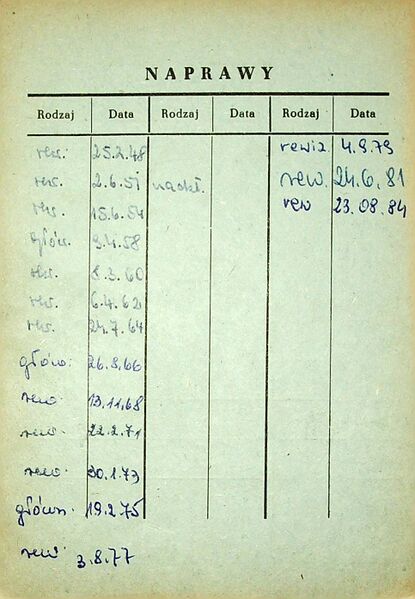 NAPRAWY
Rodzaj Data Rodzaj Data Rodzaj Data
rew. 25.2.48 rewiz. 4.9.79
rew. 2.6.51 nadkł. rew. 24.6.81
rew. 15.6.54 rew 23.08.84
główn. 9.4.58
rew. 8.3.60
rew. 6.4.62
rew. 24.7.64
główn: 26.8.66
rew 13.11.68
rew. 22.2.71
rew. 30.1.73
główn. 19.2.75
rew 3.8.77